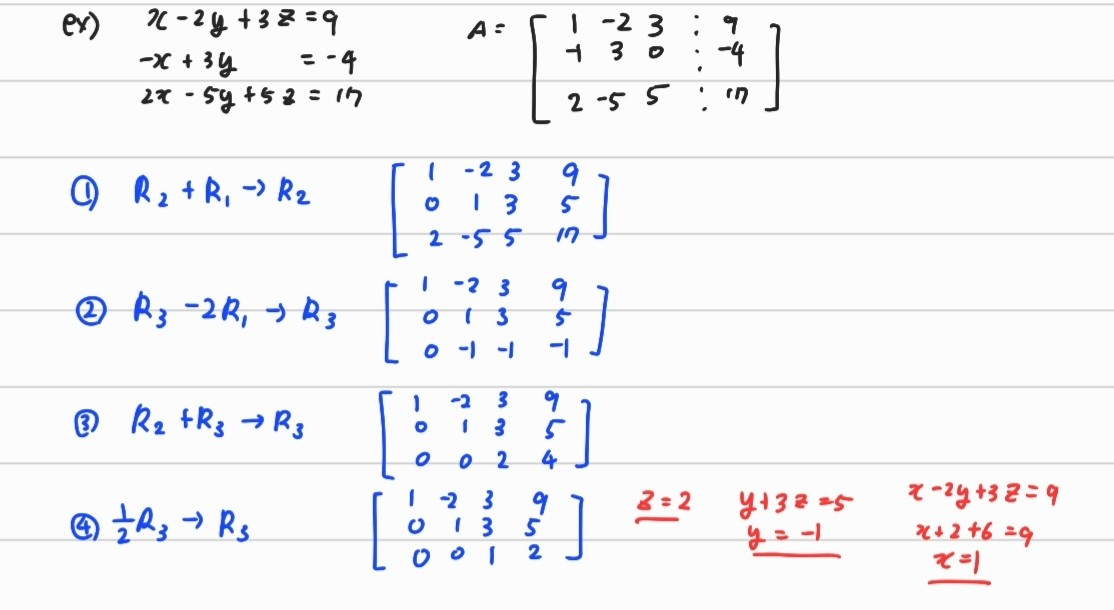 ex) x - 2y + 3z = 9
-x + 3y = -4
2x - 5y + 5z = 17
A = [ 1 -2 3 : 9
-1 3 0 : -4
2 -5 5 : 17 ]
① R₂ + R₁ → R₂
[ 1 -2 3 9
0 1 3 5
2 -5 5 17 ]
② R₃ - 2R₁ → R₃
[ 1 -2 3 9
0 1 3 5
0 -1 -1 -1 ]
③ R₂ + R₃ → R₃
[ 1 -2 3 9
0 1 3 5
0 0 2 4 ]
④ ½R₃ → R₃
[ 1 -2 3 9
0 1 3 5
0 0 1 2 ]
z = 2
y + 3z = 5
y = -1
x - 2y + 3z = 9
x + 2 + 6 = 9
x = 1